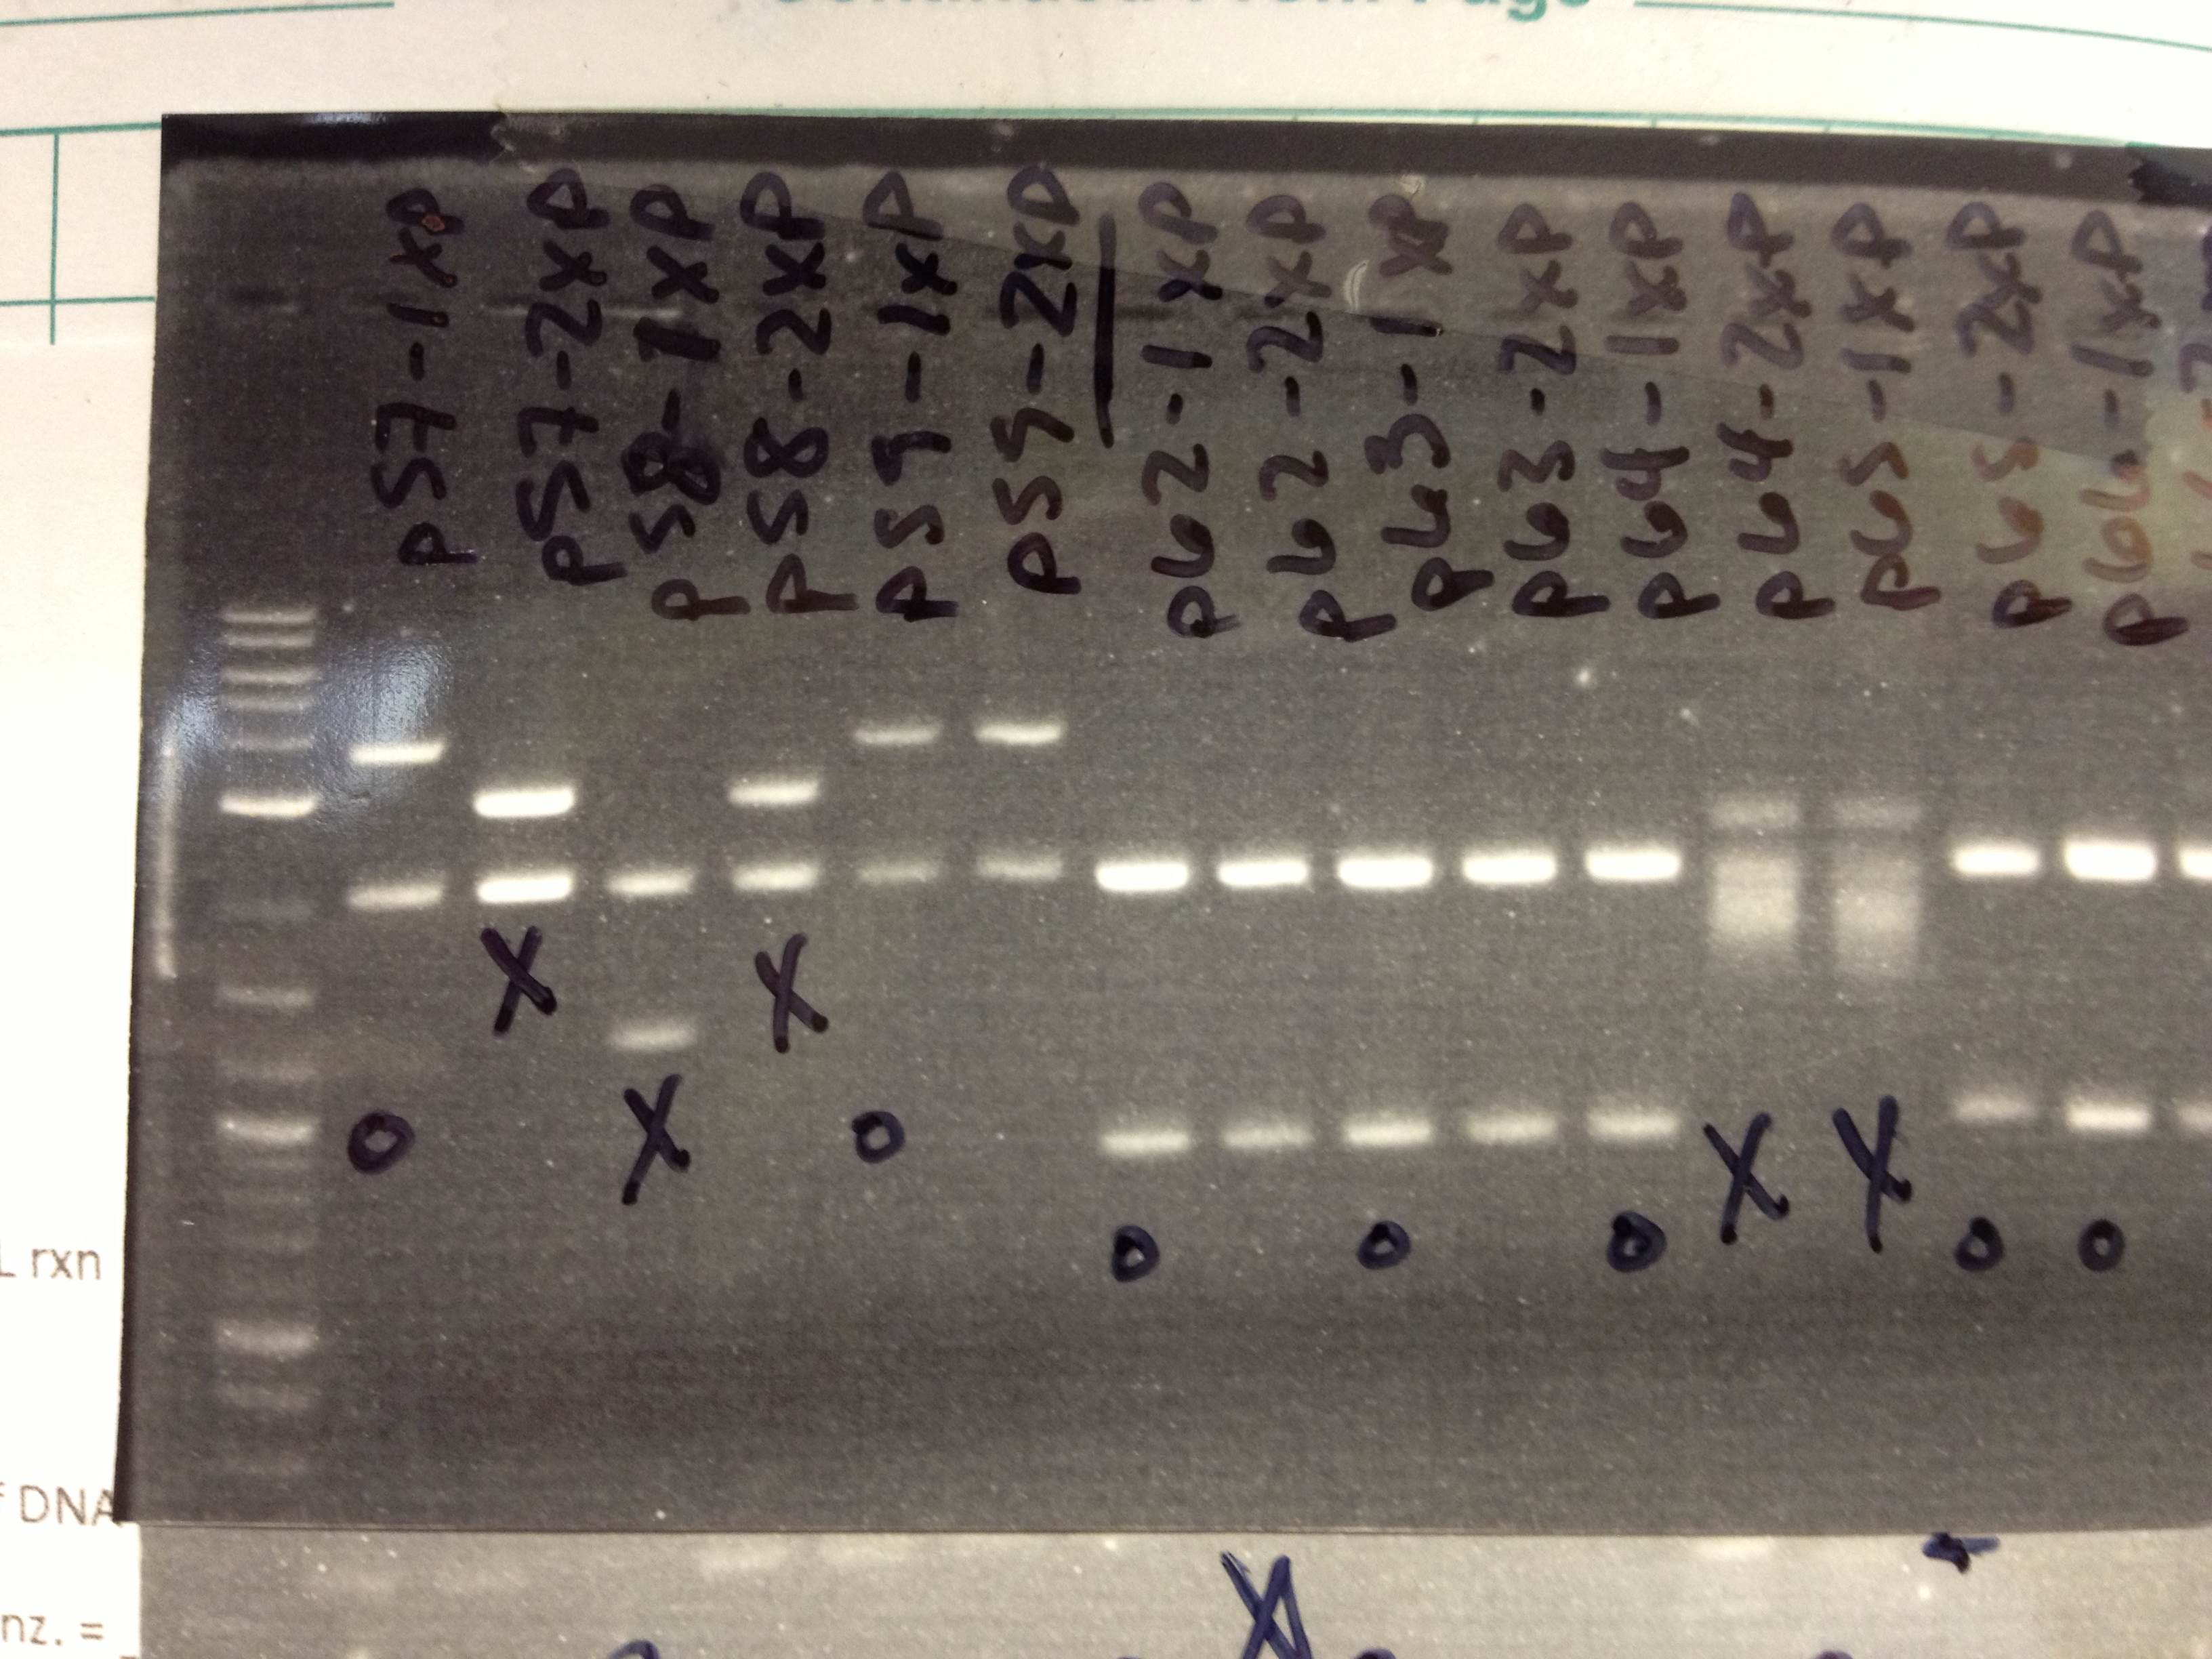 nz. =
DNA
L rxn
p57-1xP
p57-2xP
p58-1xP
p58-2xP
p59-1xP
p59-2xP
p62-1xP
p62-2xP
p63-1xP
p63-2xP
p64-1xP
p64-2xP
p65-1xP
p65-2xP
p66-1xP